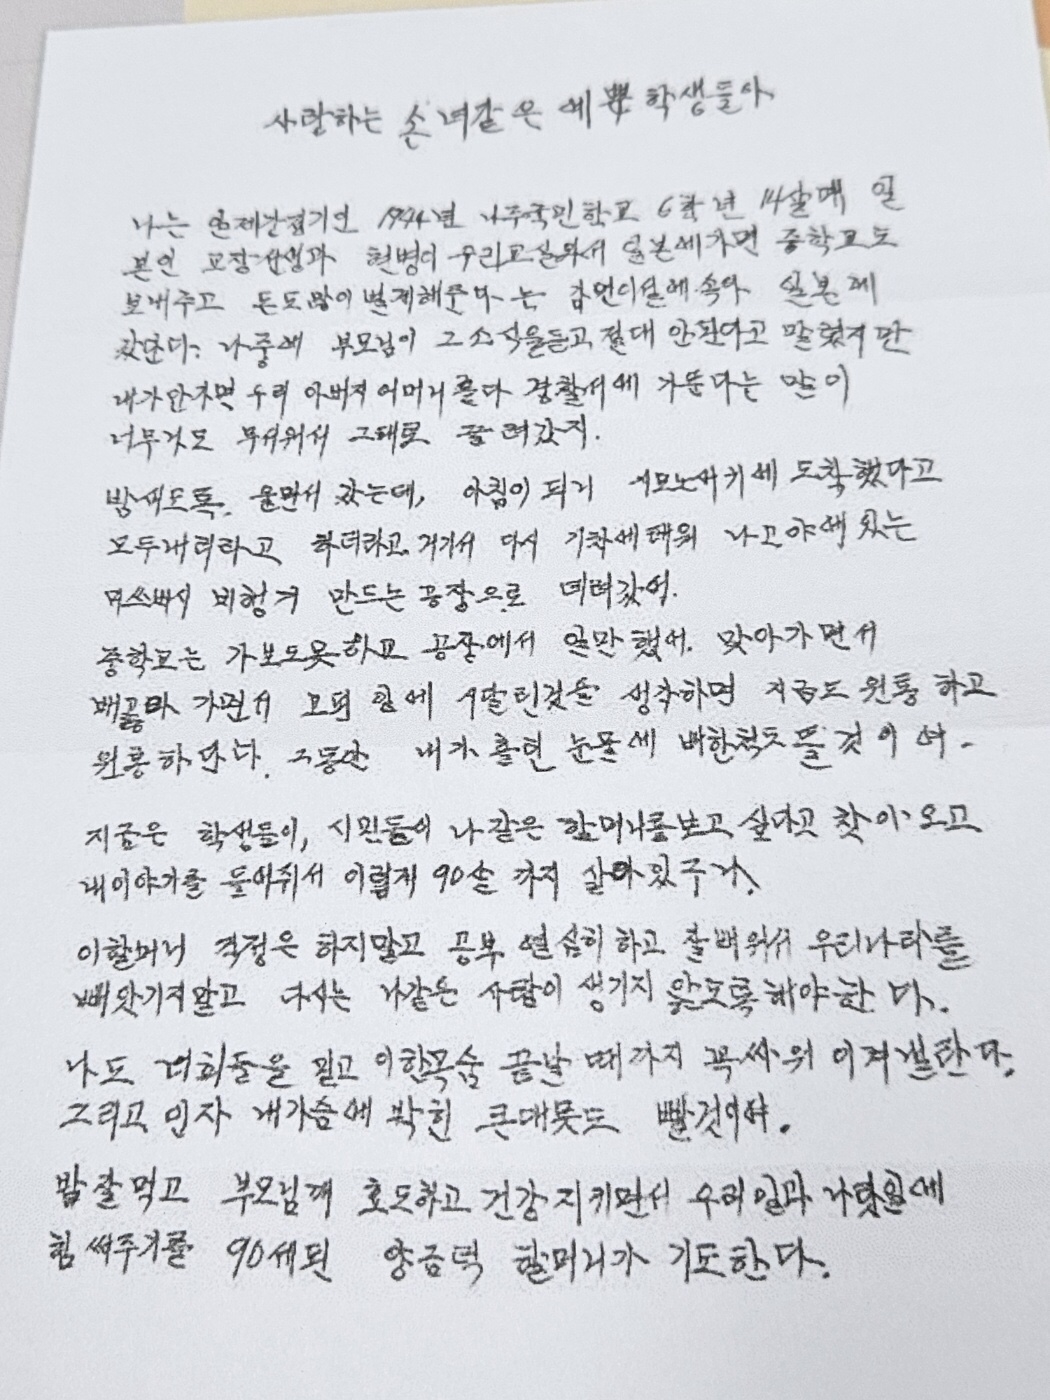 사랑하는 손녀같은 예쁜 학생들아
나는 일제강점기인 1944년 나주국민학교 6학년 14살때 일
본인 교장선생과 헌병이 우리교실와서 일본에가면 중학교도
보내주고 돈도많이벌게해준다는 감언이설에속아 일본에
갔단다. 나중에 부모님이 그소식을듣고 절대 안된다고 말렸지만
내가안가면 우리 아버지 어머니를다 경찰서에 가둔다는 말이
너무거도 무서워서 그대로 끌려갔지.
밤새도록 울면서 갔는데, 아침이 되니 시모노세키에 도착했다고
모두내리라고 하더라고. 거기서 다시 기차에태워 나고야에 있는
미쓰비시 비행기 만드는 공장으로 데려갔어.
중학교는 가보도못하고 공장에서 일만했어. 맞아가면서
배곯아 가면서 모된 일에 시달린것을 생각하면 지금도 원통하고
원통하단다. 그동안 내가 흘린 눈물에 배한척도 뜰것이여.
지금은 학생들이, 시민들이 나같은 할머니를보고 싶다고 찾아 오고
내이야기를 들어줘서 이렇게 90살 까지 살아있구나.
이할머니 걱정은 하지말고 공부 열심히하고 잘배워서 우리나라를
빼앗기지말고 다시는 나같은 사람이 생기지 않도록해야한다.
나도 너희들을 믿고 이한목숨 끝날 때까지 꼭싸워 이겨낼란다.
그리고 인자 내가슴에 박힌 큰대못도 뺄것이야.
밥잘먹고 부모님께 효도하고 건강지키면서 우리일과 나랏일에
힘써주기를 90세된 양금덕 할머니가 기도한다.